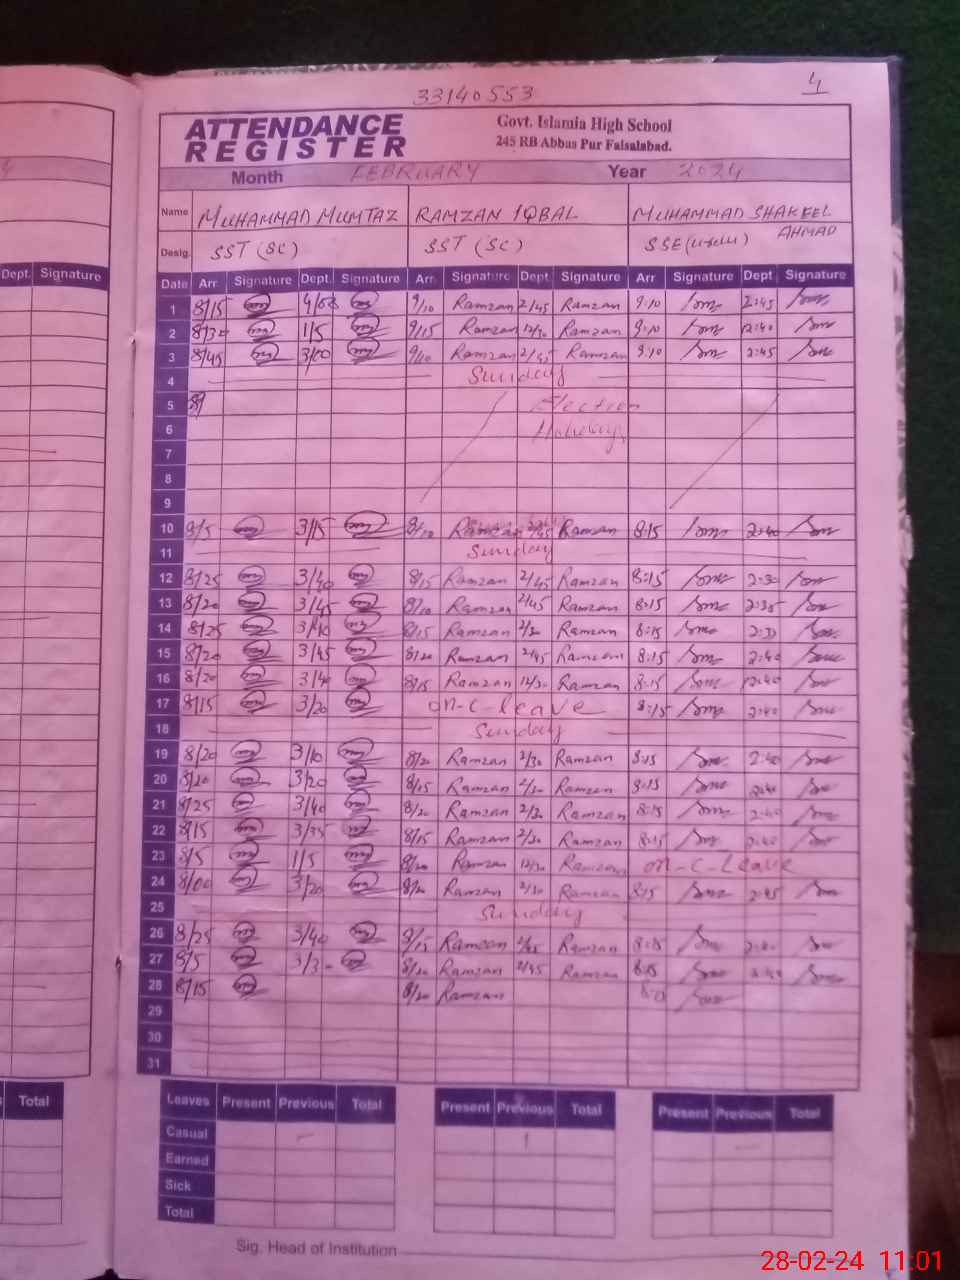 4
33140553
ATTENDANCE REGISTER
Govt. Islamia High School
245 RB Abbas Pur Faisalabad.
Month FEBRUARY Year 2024
Name MUHAMMAD MUMTAZ RAMZAN IQBAL MUHAMMAD SHAKEEL AHMAD
Desig. SST (SC) SST (SC) SSE
Dept. Signature
Date Arr. Signature Dept. Signature Arr. Signature Dept. Signature Arr Signature Dept. Signature
1 8/15 4/00 9/10 Ramzan 2/45 Ramzan 9:10 2:45
2 8/30 1/5 9/15 Ramzan 12/30 Ramzan 9:10 12:40
3 8/45 3/00 9/10 Ramzan 2/45 Ramzan 9:10 2:45
4 Sunday
5 Election
6 Holidays
7
8
9
10 9/5 3/15 8/10 Ramzan 2/45 Ramzan 8:15 2:40
11 Sunday
12 8/25 3/40 8/15 Ramzan 2/45 Ramzan 8:15 2:30
13 8/20 3/45 8/10 Ramzan 2/45 Ramzan 8:15 2:35
14 8/25 3/40 8/15 Ramzan 2/30 Ramzan 8:15 2:30
15 8/20 3/45 8/20 Ramzan 2/45 Ramzan 8:15 2:40
16 8/20 3/40 8/15 Ramzan 12/30 Ramzan 8:15 12:40
17 8/15 3/20 on-c-leave 8:15 2:40
18 Sunday
19 8/20 3/10 8/20 Ramzan 2/30 Ramzan 8:15 2:40
20 8/20 3/20 8/15 Ramzan 2/30 Ramzan 8:15 2:40
21 8/25 3/40 8/20 Ramzan 2/30 Ramzan 8:15 2:40
22 8/15 3/35 8/15 Ramzan 2/30 Ramzan 8:15 2:40
23 8/5 1/5 8/20 Ramzan 12/30 Ramzan on-c-Leave
24 8/00 3/20 8/20 Ramzan 2/30 Ramzan 8:15 2:45
25 Sunday
26 8/25 3/40 8/15 Ramzan 2/45 Ramzan 8:15 2:40
27 8/5 8/20 Ramzan 2/45 Ramzan 8:15 2:40
28 8/15 8/20 Ramzan
29
30
31
Total
Leaves Present Previous Total Present Previous Total Present Previous Total
Casual - 1 -
Earned
Sick
Total
Sig. Head of Institution
28-02-24 11:01